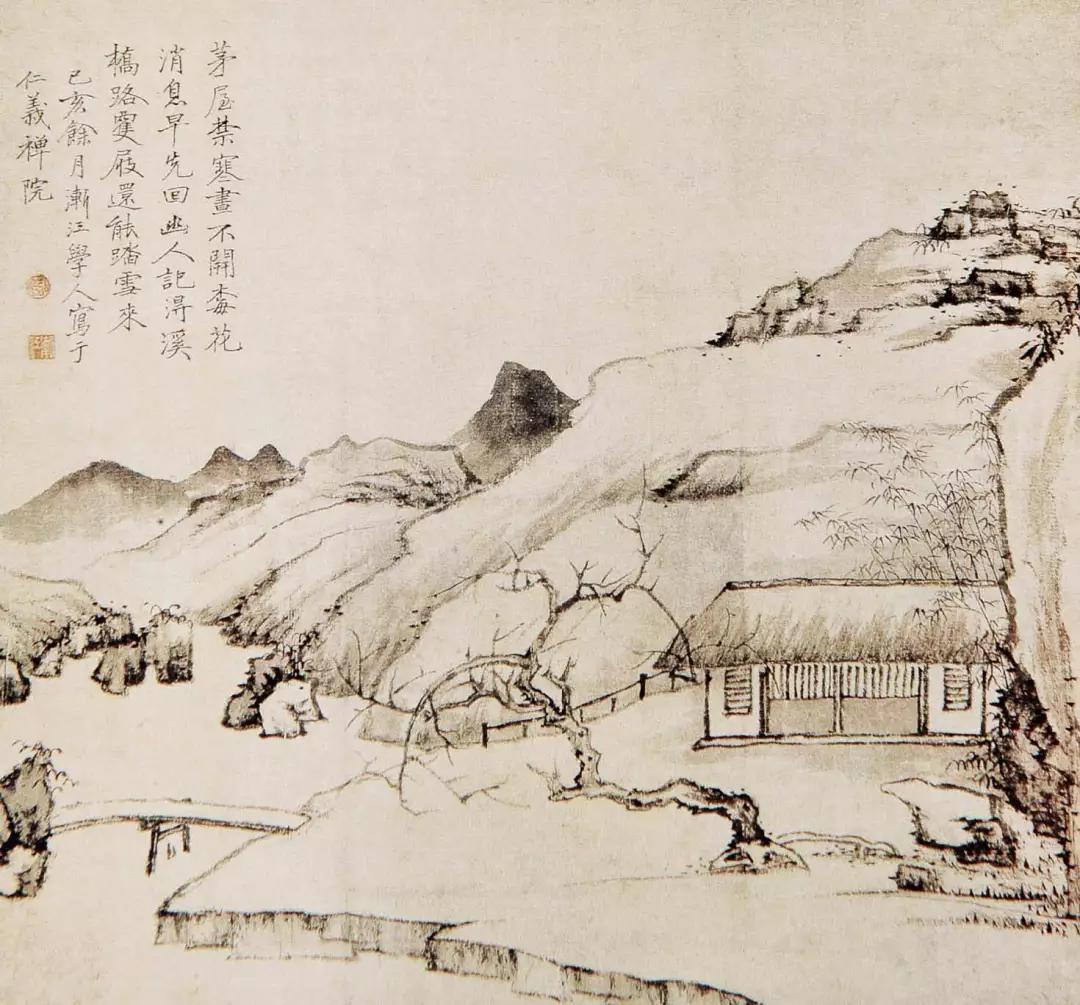 茅屋禁寒晝不開梅花
消息早先回幽人記得溪
橋路雙屐還能踏雪來
己亥餘月漸江學人寫于
仁義禅院